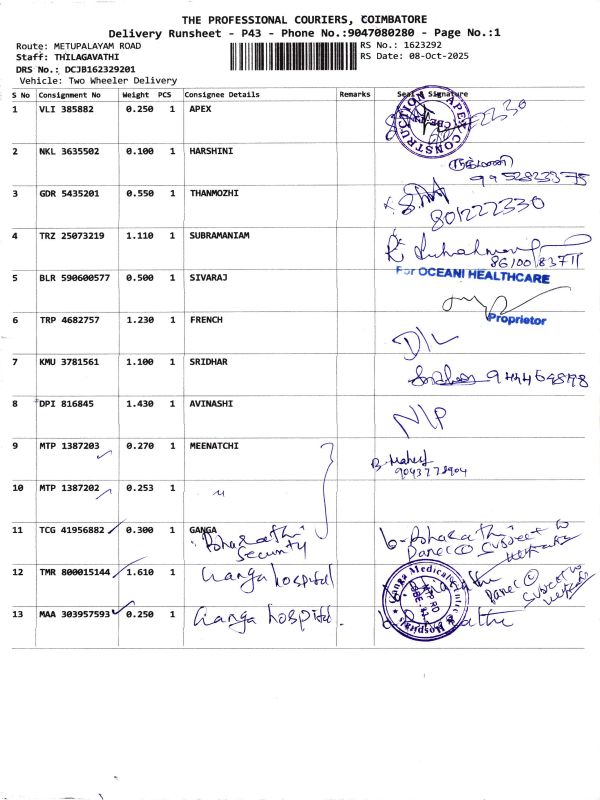 THE PROFESSIONAL COURIERS, COIMBATORE
Delivery Runsheet - P43 - Phone No.:9047080280 - Page No.:1
Route: METUPALAYAM ROAD
RS No.: 1623292
Staff: THILAGAVATHI
RS Date: 08-Oct-2025
DRS No.: DCJB162329201
Vehicle: Two Wheeler Delivery
S No Consignment No Weight PCS Consignee Details Remarks Seal Signature
1 VLI 385882 0.250 1 APEX
CONSTRUCTION APEX
2 NKL 3635502 0.100 1 HARSHINI
9952823375
3 GDR 5435201 0.550 1 THANMOZHI
801222330
4 TRZ 25073219 1.110 1 SUBRAMANIAM
8610018371
5 BLR 590600577 0.500 1 SIVARAJ
For OCEANI HEALTHCARE
Proprietor
6 TRP 4682757 1.230 1 FRENCH
D/L
7 KMU 3781561 1.100 1 SRIDHAR
8 DPI 816845 1.430 1 AVINASHI
N/P
9 MTP 1387203 0.270 1 MEENATCHI
B. Mahesh
9043778904
10 MTP 1387202 0.253 1 "
11 TCG 41956882 0.300 1 GANGA
Bharathi
Security
b-Bharathi
Panel @ Subject to
12 TMR 800015144 1.610 1 Ganga hospital
Panel @
Subject to
Ganga Medical Centre & Hospitals
MTP RD
13 MAA 303957593 0.250 1 Ganga hospital.